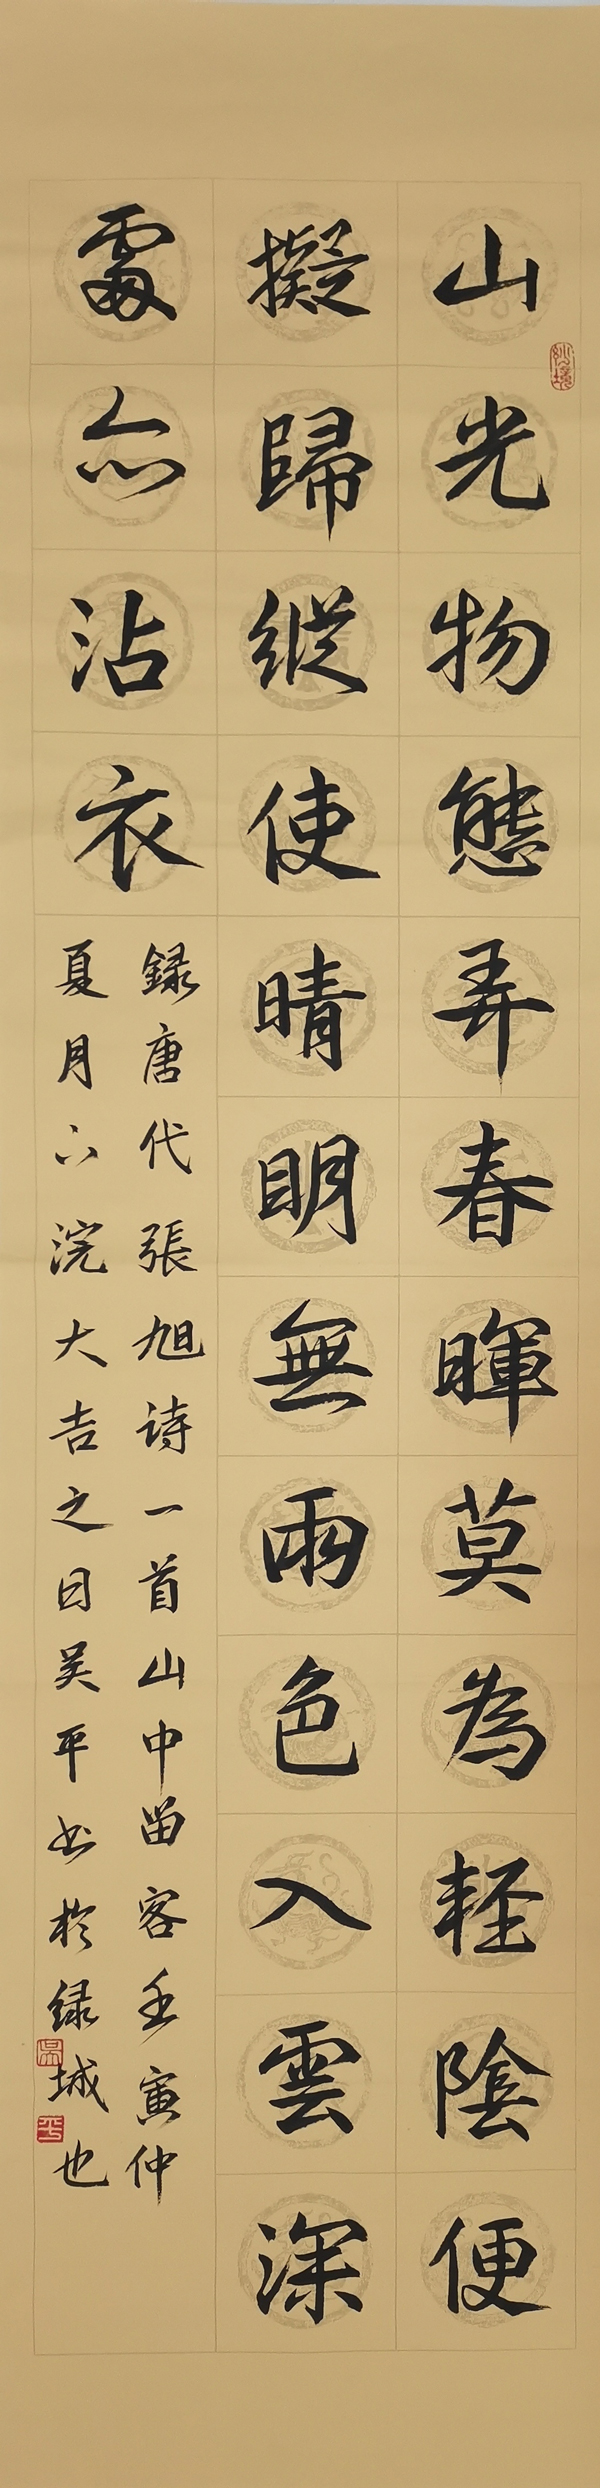 山光物態弄春暉莫為輕陰便
擬歸縱使晴明無雨色入雲深
處亦沾衣
録唐代張旭诗一首山中留客壬寅仲
夏月六浣大吉之日吴平书於緑城也
妙境
吳
平